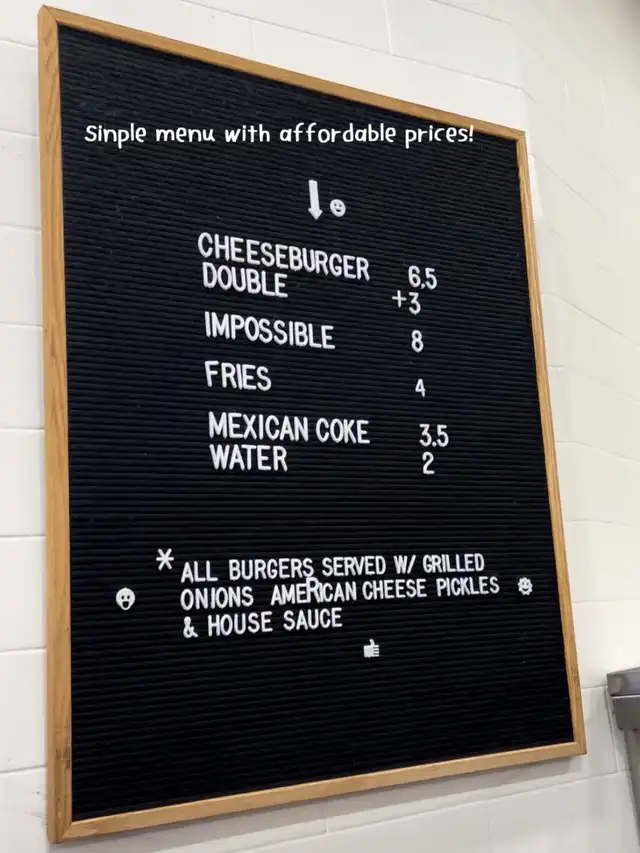 sinple menu with affordable prices!
CHEESEBURGER 6.5
DOUBLE +3
IMPOSSIBLE 8
FRIES 4
MEXICAN COKE 3.5
WATER 2
* ALL BURGERS SERVED W/ GRILLED
ONIONS AMERICAN CHEESE PICKLES
& HOUSE SAUCE